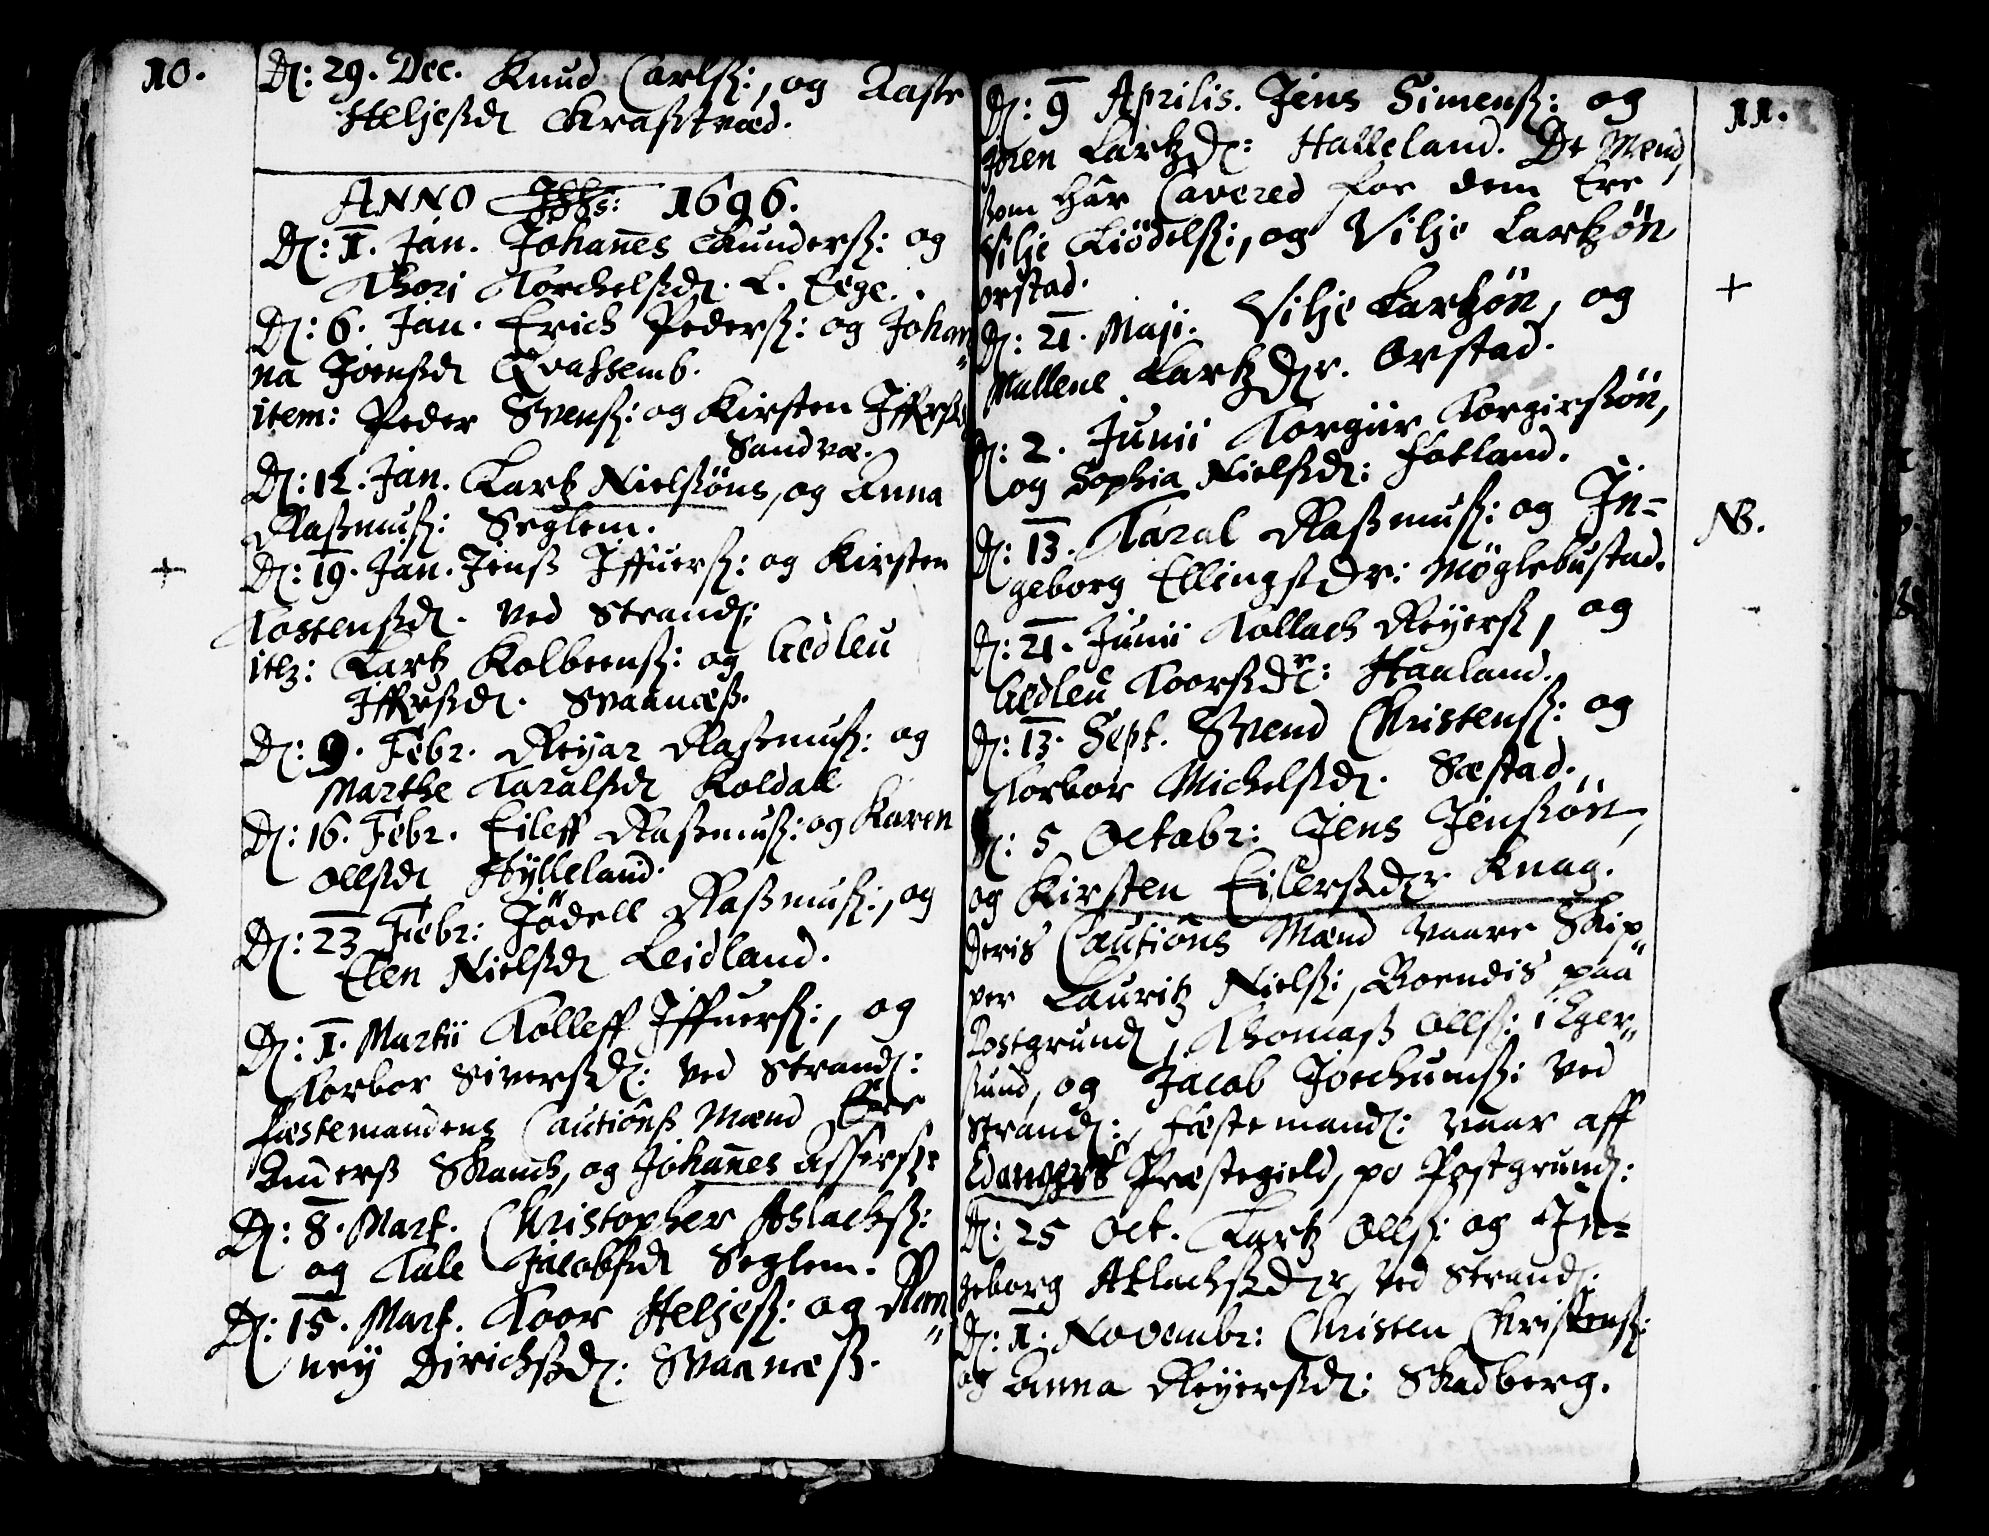 10.
D: 29. Dec. Knud Carlß:, og Aaste
Heljeßd Kraßtvæd.
ANNO 1696.
D: 1. Jan. Johanes Gunderß: og
Thori Torchelßd. L. Eege.
D: 6. Jan. Erich Pederß: og Johan„
na Joenßd Qvaßemb.
item: Peder Svenß: og Kirsten Iffrßd
Sandvæ.
D: 12. Jan. Lartz Nielßøns, og Anna
Raßmuß: Seglem.
+ D: 19. Jan. Jenß Iffuerß: og Kirsten
Tostenßd. ved Strand:
itz: Lartz Kolbeenß: og Gedleu
Iffrßd. Svaanæß.
D: 9. Febr. Reyar Raßmuß: og
Marthe Taralßd Koldall
D: 16. Febr. Eileff Raßmuß: og Karen
Ollßd Hÿlleland.
D: 23 Febr: Jødell Raßmuß:, og
Elen Nielßd Leidland.
D: 1. Martii Tolleff Iffuerß:, og
Torbor Siverßd: ved Strand:
fæstemandens Cautionß Mænd Ere
Anderß Skanch, og Johanes Asserß:
D: 8. Mart. Christopher Aslachß:
og Tale Jacobßd Seglem.
D: 15. Mart. Toor Heljeß: og Ran„
ney Dirichßd: Svaanæß.
11.
D: 9 Aprilis. Jens Simenß: og
Joren Lartzd: Halleland. De Mend,
som har Cavered for dem Ere
Vilje Kiødelß:, og Vilje Lartzøn
Orstad.
+ D: 21. Maji. Vilje Lartzøn, og
Mallene Lartzdr. Orstad.
D: 2. Junii Torgiir Torgirßøn,
og Sophia Nielßd: Fotland.
NB. D: 13. Taral Raßmuß: og In=
geborg Ellingßdr: Møglebustad.
D: 21. Junii Tollach Reyerß, og
Gedleu Toorßdr: Haaland.
D: 13. Sept. Svend Christenß: og
Torbor Michelßd. Sæstad.
D: 5 Octobr: Jens Jenßøn,
og Kirsten Eilerßdr Knag.
Deris Cautions Mænd vaare Skip„
per Lauritz Nielß:, Boendis paa
Postgrund, Thomaß Ollß: i Eger„
sund, og Jacob Jochumß: ved
Strand:, fæstemand: vaar aff
Præstegield, po Postgrund:
D: 25 Oct. Lartz Ollß: og In=
geborg Atlachßdr, ved Strand:
D: 1. Novembr: Christen Christenß:
og Anna Reyerßd: Skadberg.